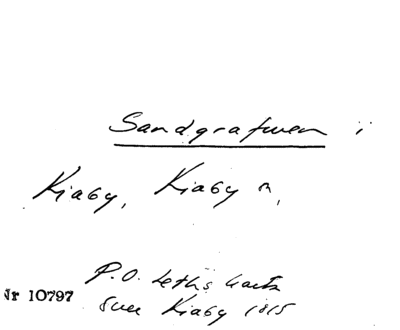 Sandgrafwen i
Kiaby, Kiaby n,
P.O. Leths karta
Nr 10797
över Kiaby 1815